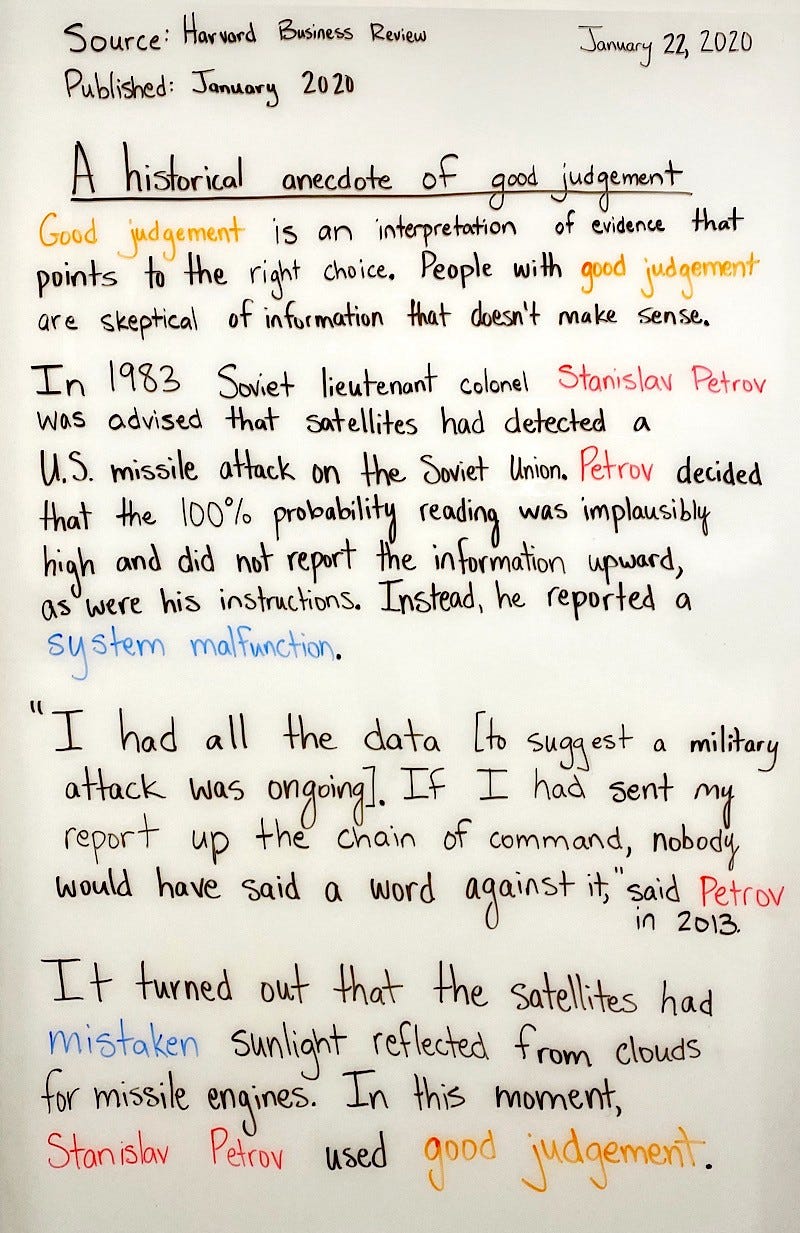 Source: Harvard Business Review
January 22, 2020
Published: January 2020
A historical anecdote of good judgement
Good judgement is an interpretation of evidence that
points to the right choice. People with good judgement
are skeptical of information that doesn't make sense.
In 1983 Soviet lieutenant colonel Stanislav Petrov
was advised that satellites had detected a
U.S. missile attack on the Soviet Union. Petrov decided
that the 100% probability reading was implausibly
high and did not report the information upward,
as were his instructions. Instead, he reported a
system malfunction.
"I had all the data [to suggest a military
attack was ongoing]. If I had sent my
report up the chain of command, nobody
would have said a word against it," said Petrov
in 2013.
It turned out that the satellites had
mistaken sunlight reflected from clouds
for missile engines. In this moment,
Stanislav Petrov used good judgement.